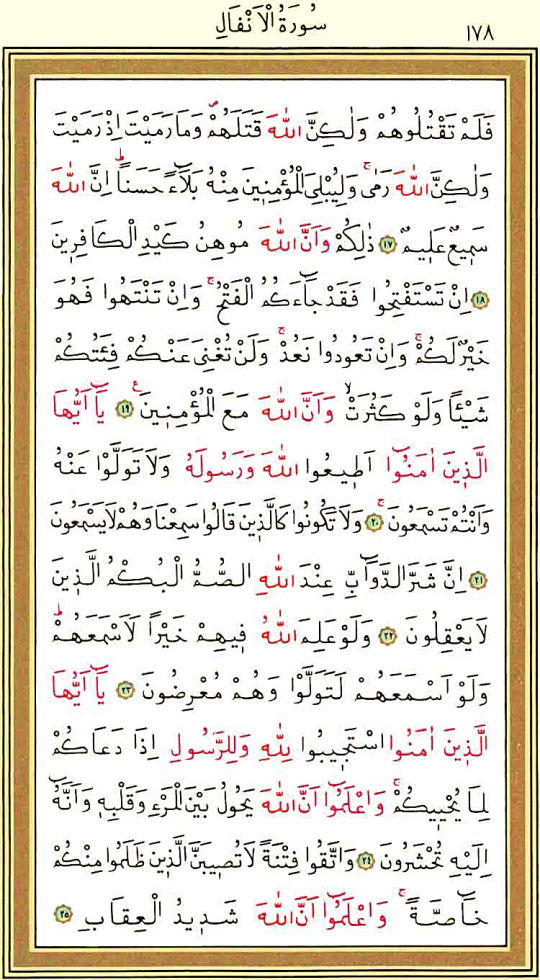 سُورَةُ الْاَنْفَالِ
١٧٨
فَلَمْ تَقْتُلُوهُمْ وَلٰكِنَّ اللّٰهَ قَتَلَهُمْۖ وَمَا رَمَيْتَ اِذْ رَمَيْتَ
وَلٰكِنَّ اللّٰهَ رَمٰىۚ وَلِيُبْلِيَ الْمُؤْمِنِينَ مِنْهُ بَلَٓاءً حَسَناًۜ اِنَّ اللّٰهَ
سَمِيعٌ عَلِيمٌ ﴿١٧﴾ ذٰلِكُمْ وَاَنَّ اللّٰهَ مُوهِنُ كَيْدِ الْكَافِرِينَ
﴿١٨﴾ اِنْ تَسْتَفْتِحُوا فَقَدْ جَٓاءَكُمُ الْفَتْحُۚ وَاِنْ تَنْتَهُوا فَهُوَ
خَيْرٌ لَكُمْۚ وَاِنْ تَعُودُوا نَعُدْۚ وَلَنْ تُغْنِيَ عَنْكُمْ فِئَتُكُمْ
شَيْـٔاً وَلَوْ كَثُرَتْۙ وَاَنَّ اللّٰهَ مَعَ الْمُؤْمِنِينَ۟ ﴿١٩﴾ يَٓا اَيُّهَا
الَّذِينَ اٰمَنُٓوا اَطِيعُوا اللّٰهَ وَرَسُولَهُ وَلَا تَوَلَّوْا عَنْهُ
وَاَنْتُمْ تَسْمَعُونَۚ ﴿٢٠﴾ وَلَا تَكُونُوا كَالَّذِينَ قَالُوا سَمِعْنَا وَهُمْ لَا يَسْمَعُونَ
﴿٢١﴾ اِنَّ شَرَّ الدَّوَٓابِّ عِنْدَ اللّٰهِ الصُّمُّ الْبُكْمُ الَّذِينَ
لَا يَعْقِلُونَ ﴿٢٢﴾ وَلَوْ عَلِمَ اللّٰهُ فِيهِمْ خَيْراً لَاَسْمَعَهُمْۜ
وَلَوْ اَسْمَعَهُمْ لَتَوَلَّوْا وَهُمْ مُعْرِضُونَ ﴿٢٣﴾ يَٓا اَيُّهَا
الَّذِينَ اٰمَنُوا اسْتَجِيبُوا لِلّٰهِ وَلِلرَّسُولِ اِذَا دَعَاكُمْ
لِمَا يُحْيِيكُمْۚ وَاعْلَمُٓوا اَنَّ اللّٰهَ يَحُولُ بَيْنَ الْمَرْءِ وَقَلْبِهِ وَاَنَّهُٓ
اِلَيْهِ تُحْشَرُونَ ﴿٢٤﴾ وَاتَّقُوا فِتْنَةً لَا تُصِيبَنَّ الَّذِينَ ظَلَمُوا مِنْكُمْ
خَٓاصَّةًۚ وَاعْلَمُٓوا اَنَّ اللّٰهَ شَدِيدُ الْعِقَابِ ﴿٢٥﴾